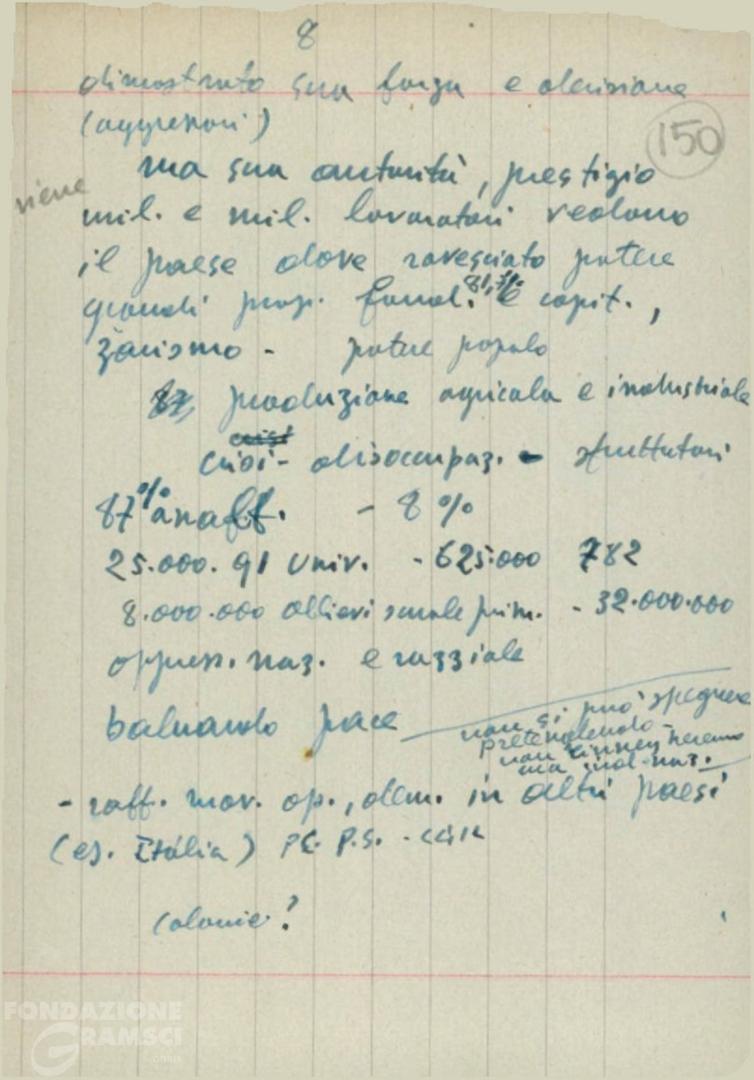 8
dimostrato sua forza e decisione
(aggressori)
150
ma sua autorità, prestigio
viene
mil. e mil. lavoratori vedono
il paese dove rovesciato potere
grandi prop. fond. e capit.,
zarismo - potere popolo
produzione agricola e industriale
crisi - disoccupaz. - sfruttatori
87% analf. - 8%
25.000. 91 Univ. - 625.000 782
8.000.000 allievi scuole prim. - 32.000.000
oppress. naz. e razziale
baluardo pace
non si può spegnere
pretendendo
non
ma naz.
- raff. mov. op., dem. in altri paesi
(es. Italia) P.C. P.S. -
colonie?
FONDAZIONE
GRAMSCI